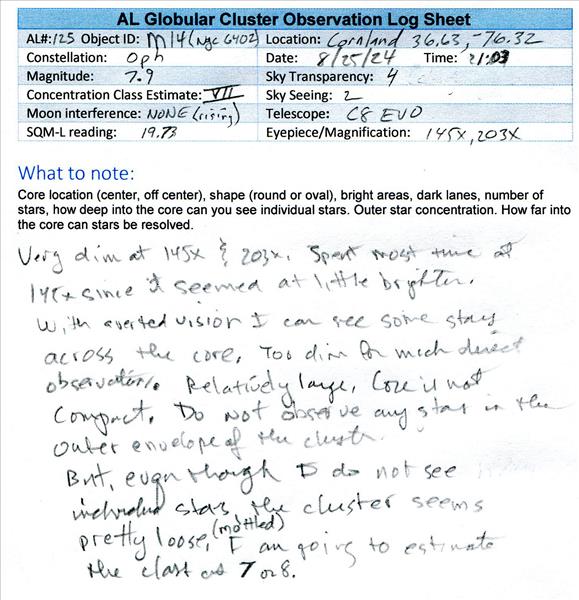 AL Globular Cluster Observation Log Sheet
AL#: 125 Object ID: M14 (NGC 6402) Location: Cornland 36.63, -76.32
Constellation: Oph Date: 8/25/24 Time: 21:03
Magnitude: 7.9 Sky Transparency: 4
Concentration Class Estimate: VII Sky Seeing: 2
Moon interference: NONE (rising) Telescope: C8 EVO
SQM-L reading: 19.73 Eyepiece/Magnification: 145X, 203X
What to note:
Core location (center, off center), shape (round or oval), bright areas, dark lanes, number of
stars, how deep into the core can you see individual stars. Outer star concentration. How far into
the core can stars be resolved.
Very dim at 145X & 203X. Spent most time at
145x since it seemed at little brighter.
With averted vision I can see some stars
across the core. Too dim for much direct
observation. Relatively large, Core is not
Compact. Do not observe any stars in the
outer envelope of the cluster.
But, even though I do not see
individual stars, the cluster seems
pretty loose, (mottled) I am going to estimate
the class at 7 or 8.